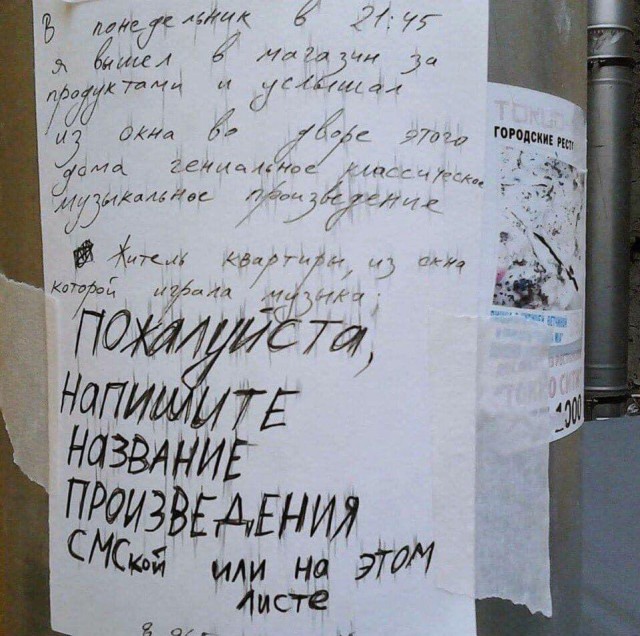 В понедельник в 21:45
я вышел в магазин за
продуктами и услышал
из окна во дворе этого
дома гениальное классическое
музыкальное произведение
Житель квартиры, из окна
которой играла музыка:
ПОЖАЛУЙСТА,
НАПИШИТЕ
НАЗВАНИЕ
ПРОИЗВЕДЕНИЯ
СМСкой или на ЭТОМ
листе
ГОРОДСКИЕ РЕСТ